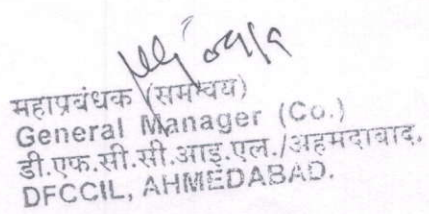 महाप्रबंधक (समन्वय)
General Manager (Co.)
डी.एफ.सी.सी.आइ.एल./अहमदाबाद.
DFCCIL, AHMEDABAD.